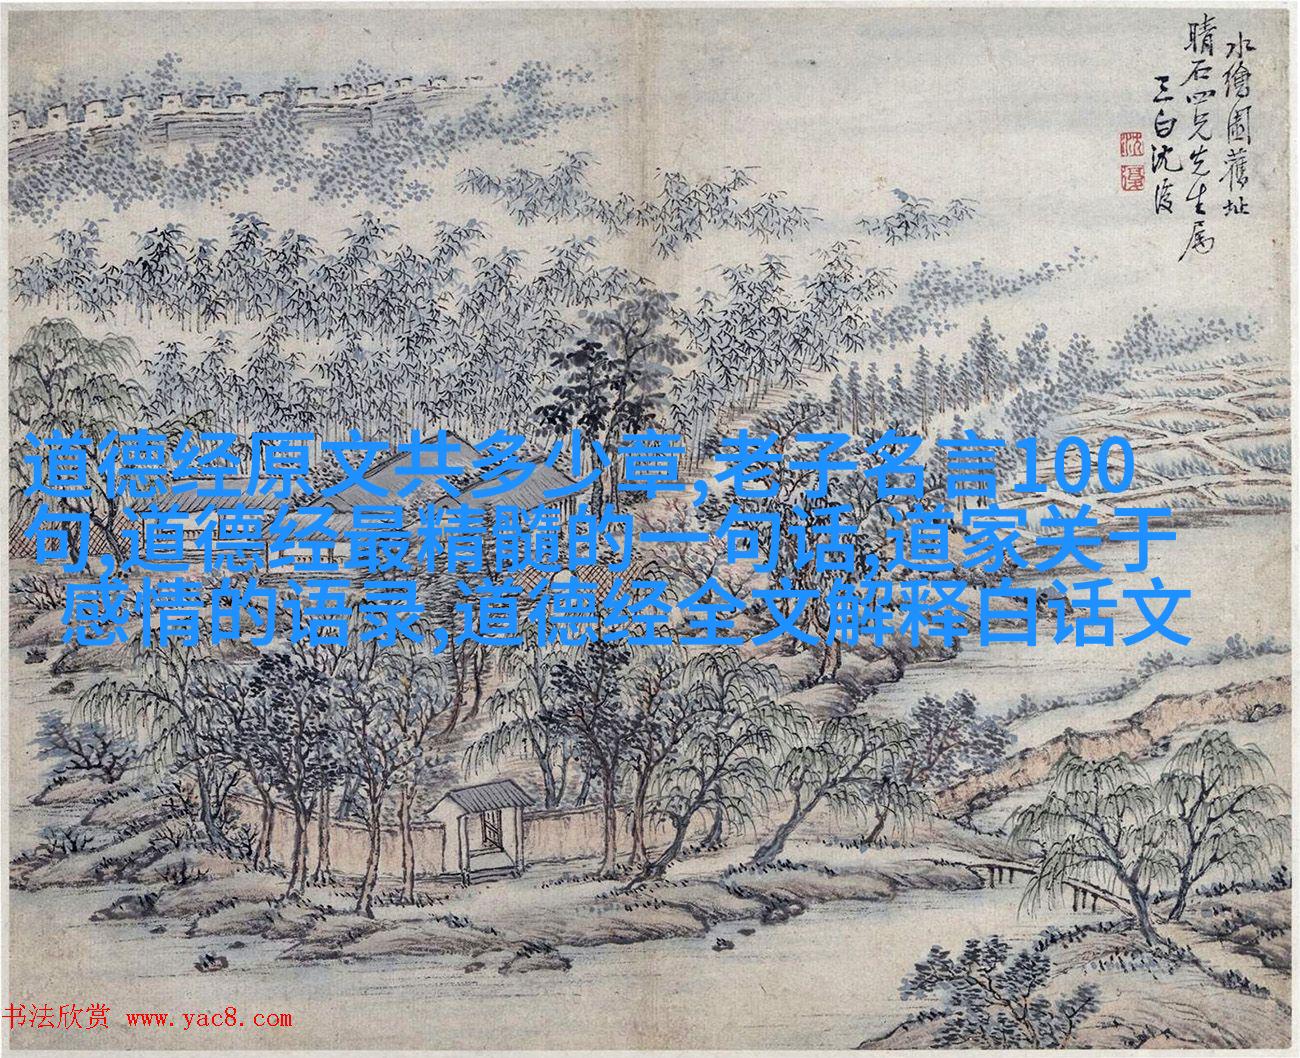 水繪園舊址
晴石四兄先生属
三白沈復
沈復
道德经原文共多少章,老子名言100
句,道德经最精髓的一句话,道家关于
感情的语录,道德经全文解释白话文
书法欣赏 www.yac8.com